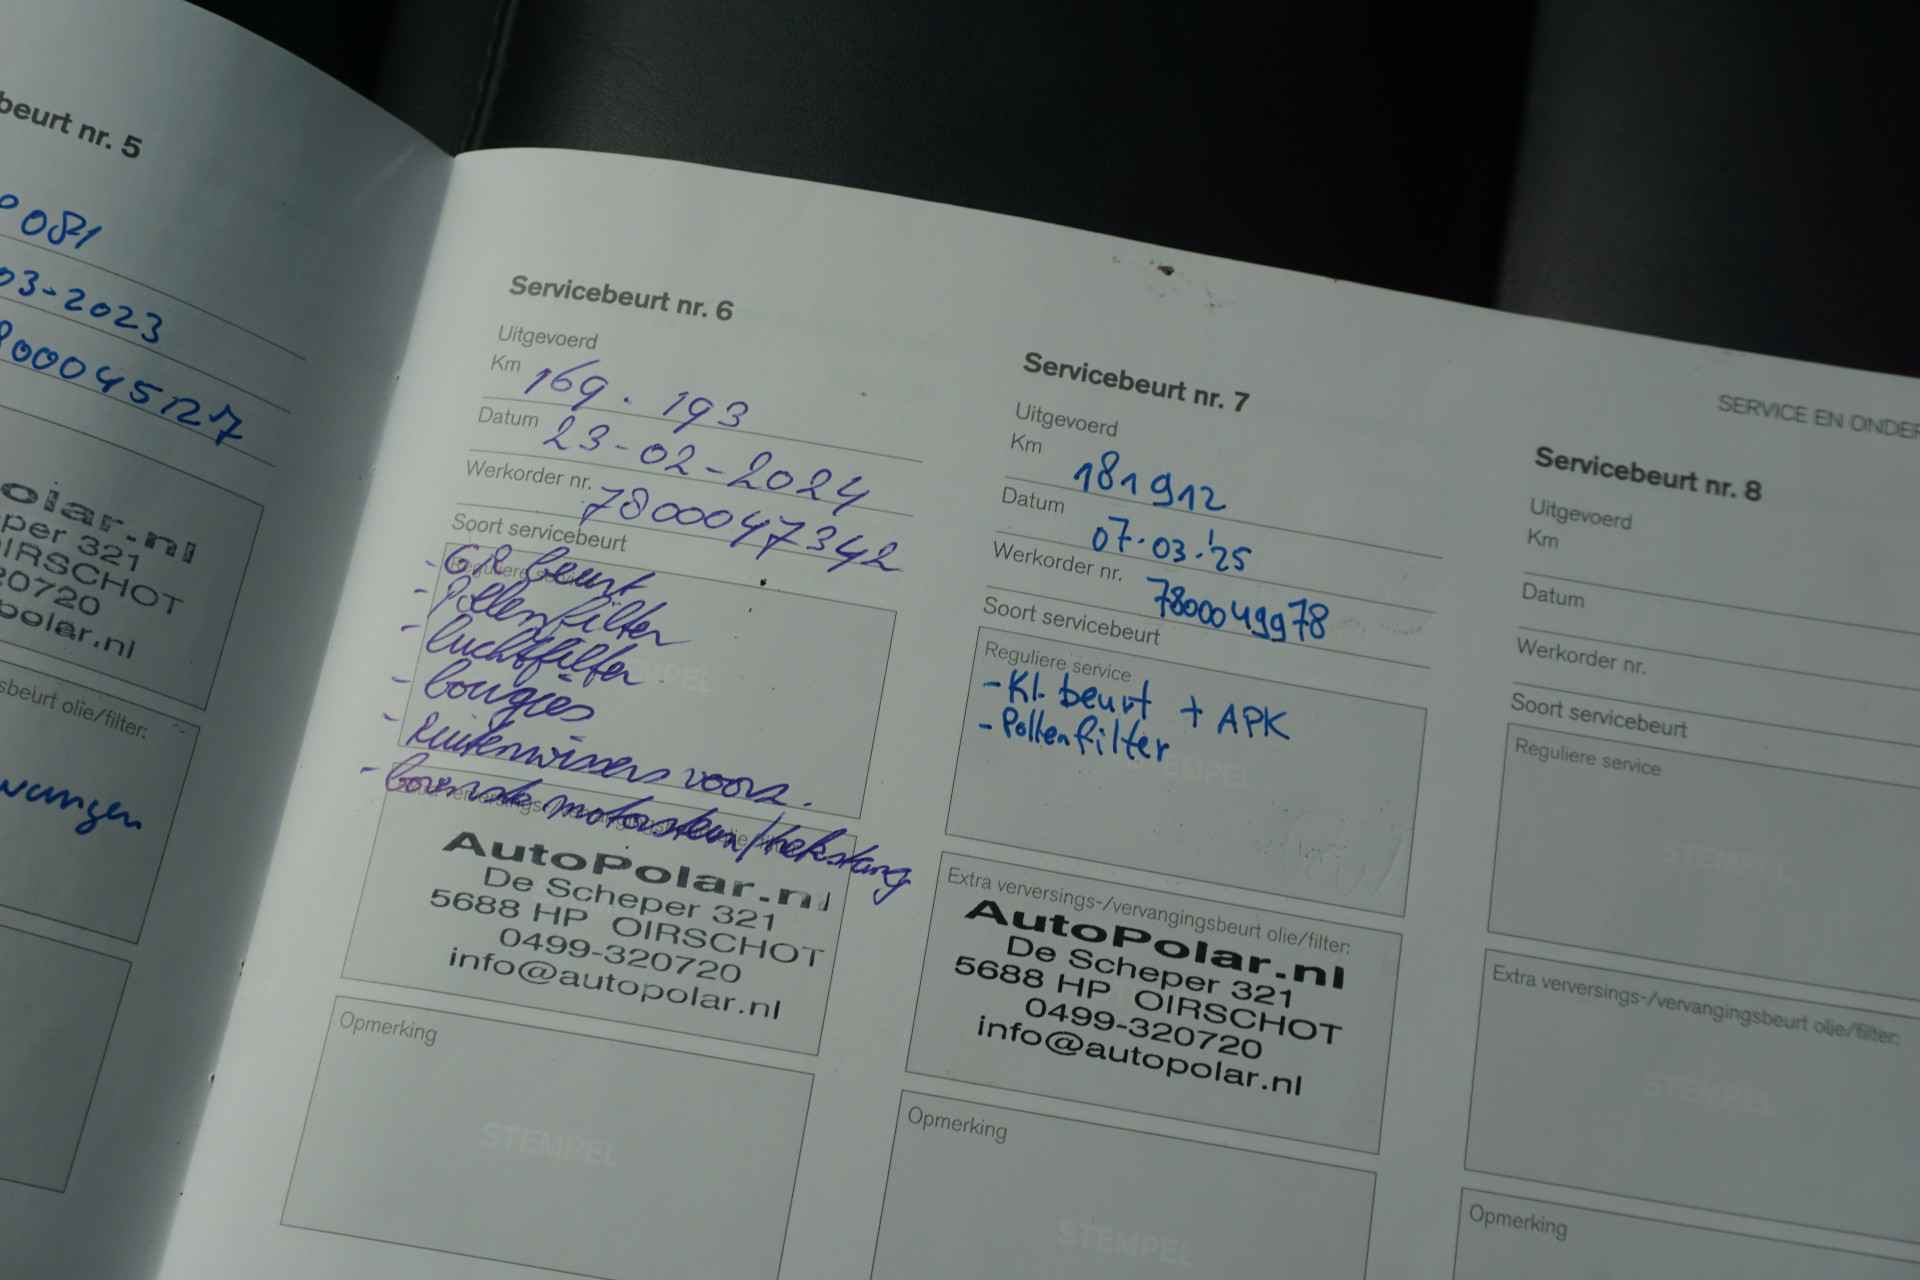 beurt nr. 5
081
03-2023
800045127
olar.nl
per 321
OIRSCHOT
20720
polar.nl
sbeurt olie/filter:
vervangen
Servicebeurt nr. 6
Uitgevoerd
Km 169.193
Datum 23-02-2024
Werkorder nr. 7800047342
Soort servicebeurt
Reguliere service
- GR beurt
- Pollenfilter
- luchtfilter
- bougies
- Ruitenwissers voorz.
- bovenste motorsteun/trekstang
STEMPEL
AutoPolar.nl
De Scheper 321
5688 HP OIRSCHOT
0499-320720
info@autopolar.nl
Opmerking
STEMPEL
Servicebeurt nr. 7
Uitgevoerd
Km 181912
Datum 07.03.'25
Werkorder nr. 7800049978
Soort servicebeurt
Reguliere service
- Kl. beurt + APK
- Pollenfilter
STEMPEL
Extra verversings-/vervangingsbeurt olie/filter:
AutoPolar.nl
De Scheper 321
5688 HP OIRSCHOT
0499-320720
info@autopolar.nl
Opmerking
STEMPEL
SERVICE EN ONDER
Servicebeurt nr. 8
Uitgevoerd
Km
Datum
Werkorder nr.
Soort servicebeurt
Reguliere service
STEMPEL
Extra verversings-/vervangingsbeurt olie/filter:
STEMPEL
Opmerking